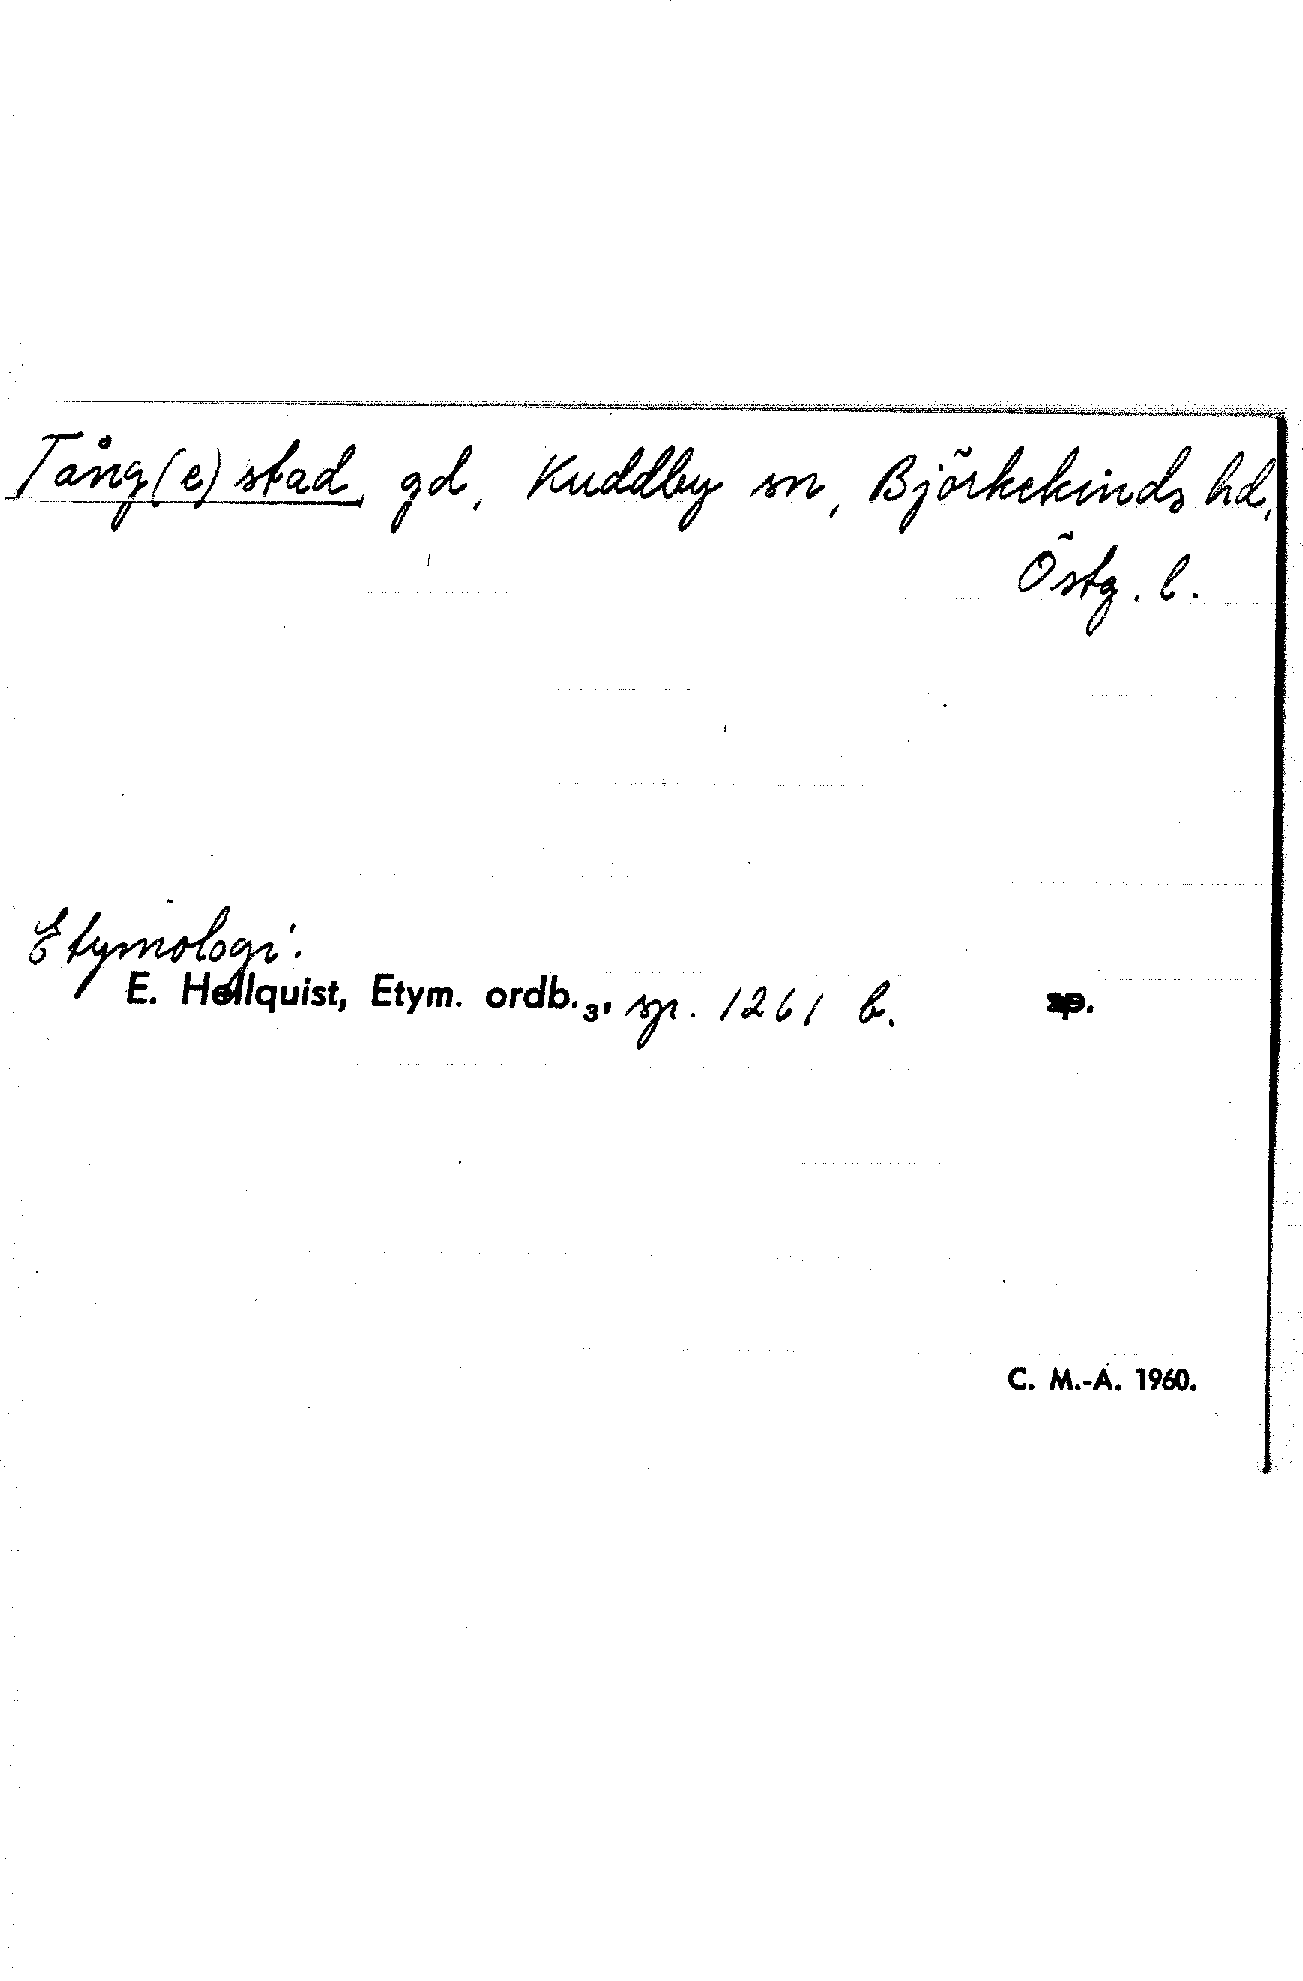 Tång(e)stad, gd, Kuddby sn, Björkekinds hd,
Östg. l.
Etymologi:
E. Hellquist, Etym. ordb.₃, sp. 1261 b. sp.
C. M.-A. 1960.